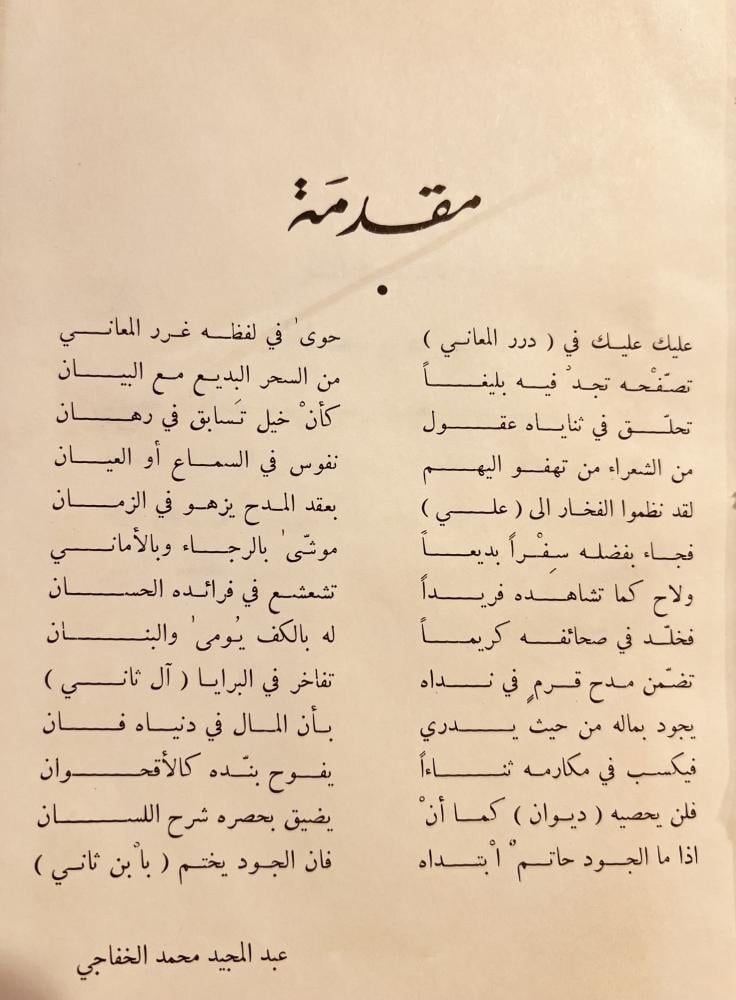 مقدمة
عليك عليك في ( درر المعاني ) حوى في لفظه غرر المعاني
تصفّحْه تجدْ فيه بليغاً من السحر البديع مع البيان
تحلّق في ثناياه عقول كأنْ خيل تَسابق في رهان
من الشعراء من تهفو اليهم نفوس في السماع أو العيان
لقد نظموا الفخار الى ( علي ) بعقد المدح يزهو في الزمان
فجاء بفضله سِفْراً بديعاً موشّى بالرجاء وبالأماني
ولاح كما تشاهده فريداً تشعشع في فرائده الحسان
فخلّد في صحائفه كريماً له بالكف يُومى والبنان
تضمّن مدح قرمٍ في نداه تفاخر في البرايا ( آل ثاني )
يجود بماله من حيث يدري بأن المال في دنياه فان
فيكسب في مكارمه ثناءاً يفوح بندّه كالأقحوان
فلن يحصيه ( ديوان ) كما أنْ يضيق بحصره شرح اللسان
اذا ما الجود حاتمٌ اْبتداه فان الجود يختم ( باْبن ثاني )
عبد المجيد محمد الخفاجي